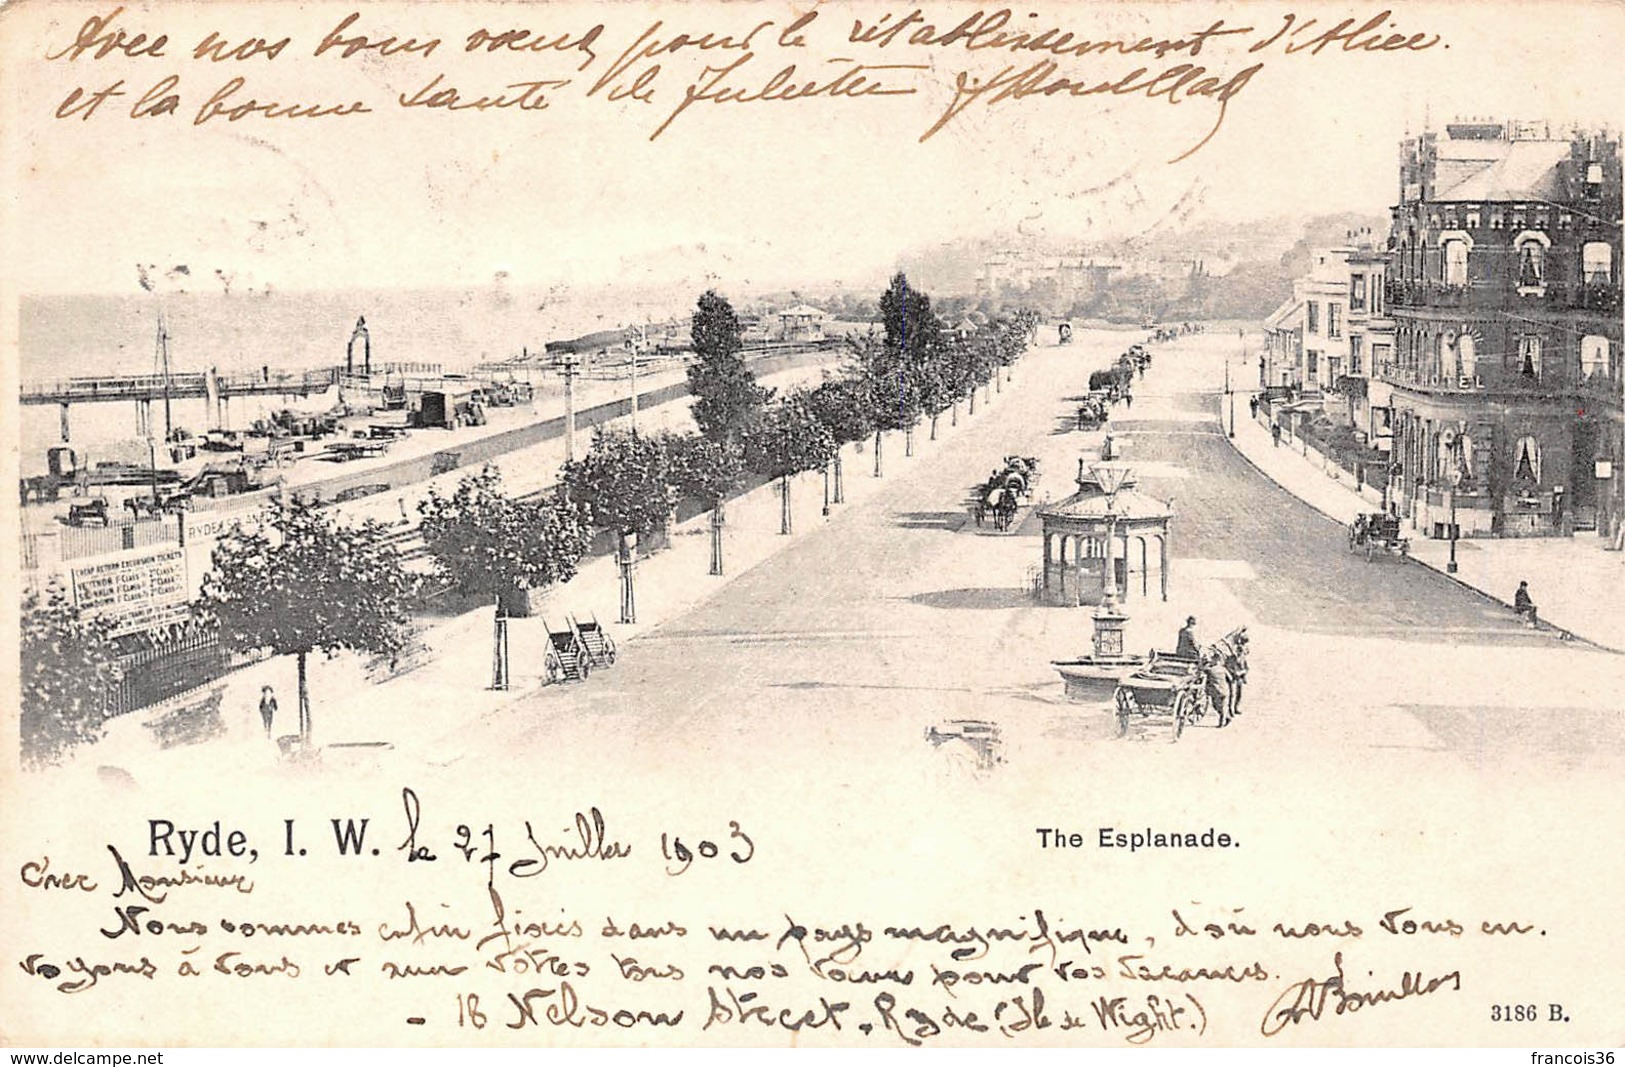 Avec nos bons vœux pour le rétablissement d'Alice.
et la bonne santé de Juliette
HOTEL
RYDE
CHEAP RETURN EXCURSION TICKETS
VENTNOR 1st CLASS
SANDOWN 1st CLASS
Ryde, I. W. le 27 Juillet 1903
The Esplanade.
Cher Monsieur
Nous sommes enfin fixés dans un pays magnifique, d'où nous vous en.
voyons à vous et aux vôtres tous nos vœux pour vos vacances.
- 18 Nelson Street, Ryde (Ile de Wight.)
ABouillas
3186 B.
francois36